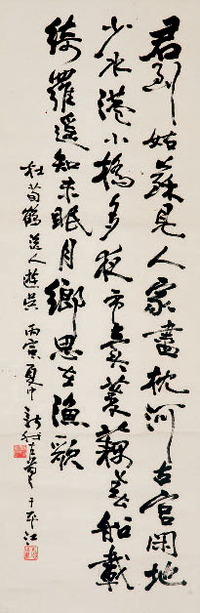 君到姑蘇見人家盡枕河古宮閑地
少水港小橋多夜市賣菱藕春船載
綺羅遥知未眠月鄉思在漁歌
杜荀鶴送人遊吳 丙寅夏中 新 于平江